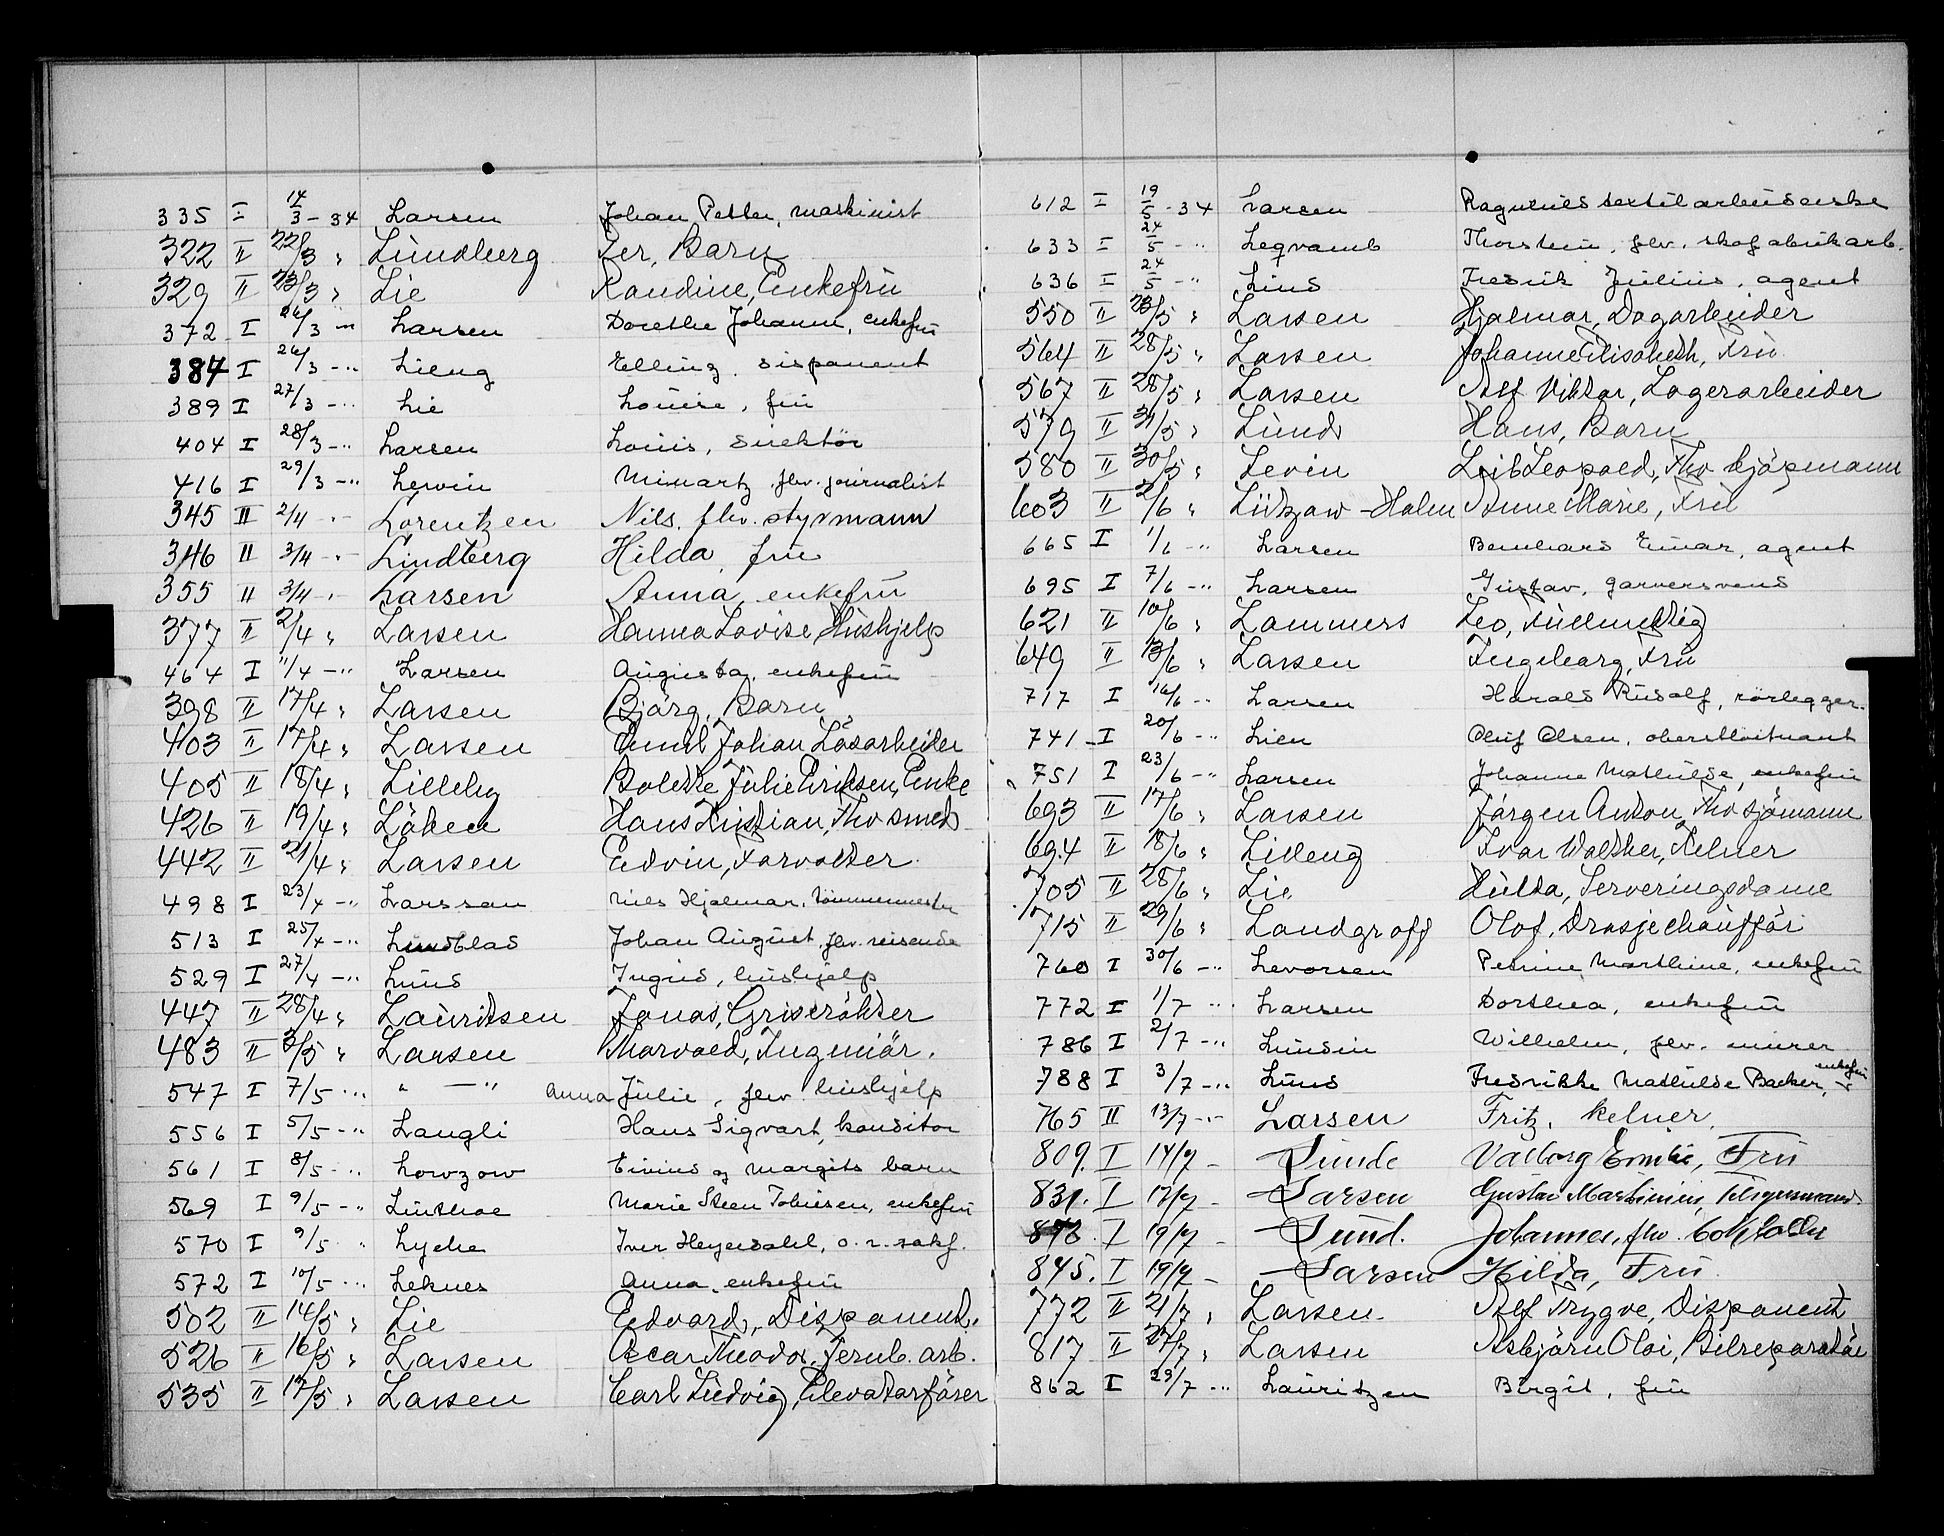 335 I 14/3 - 34 Larsen Johan Petter, maskinist
322 II 22/3 " Lundberg Per, Barn
329 II 23/3 " Lie Randine, Enkefru
372 I 26/3 - " Larsen Dorethe Johanne, enkefru
384 I 26/3 - " Lieng Elling, disponent
389 I 27/3 - " Lie Louise, fru
404 I 28/3 - " Larsen Louis, direktör
416 I 29/3 - " Lewin flv. journalist
345 II 2/4 - " Lorentzen Nils, flv. styrmann
346 II 3/4 - " Lindberg Hilda, fru
355 II 3/4 - " Larsen Anna, enkefru
377 II 2/4 " Larsen Hanna Lovise, Hushjelp
464 I 11/4 - " Larsen Augusta, enkefru
398 II 17/4 " Larsen Bjørg, Barn
403 II 17/4 " Larsen Emil Johan Løsarbeider
405 II 18/4 " Lilleby Bolette Julie Eriksen, Enke
426 II 19/4 " Löken Hans Kristian, Fhv smed
442 II 21/4 " Larsen Edvin, Forvalter
498 I 23/4 - " Larsson Nils Hjalmar, tömmermester
513 I 25/4 - " Lindblad Johan August, flv. reisende
529 I 27/4 - " Lund Ingrid, hushjelp
447 II 28/4 " Lauritsen Jonas, Griserökter
483 II 3/5 " Larsen Harvald, Ingeniör.
547 I 7/5 - " " — " Anna Julie, flv hushjelp
556 I 5/5 - " Langli Hans Sigvart, konditor
561 I 8/5 - " Lowzow Eivind og Margits barn
569 I 9/5 - " Lindhoe Marie Steen Tobiesen, enkefru
570 I 9/5 " Lyche Iver Heyerdahl, o.r. sakf.
572 I 10/5 - " Leknes Anna, enkefru
502 II 14/5 " Lie Edvard, Disponent.
526 II 16/5 " Larsen Oscar Theodor, Jernb. arb.
535 II 17/5 " Larsen Carl Ludvig, Elevatorförer
612 I 19/5 - 34 Larsen Ragnhild textilarbeiderske
633 I 24/5 - " Leqvamb Thorstein, flv. skofabrikarb.
636 I 24/5 - " Lund Fredrik Julius, agent
550 II 23/5 " Larsen Hjalmar, Dagarbeider
564 II 28/5 " Larsen Johanne Elisabeth, Fru
567 II 28/5 " Larsen Alf Viktor, Lagerarbeider
579 II 31/5 " Lund Hans, Barn
580 II 30/5 " Levin Leib Leopold, Fhv kjöpmann
603 II 2/6 " Lützow-Holm Anne Marie, Fru
665 I 1/6 - " Larsen Bernhard Einar, agent
695 I 7/6 - " Larsen Gustav, garversvend
621 II 10/6 " Lammers Leo, Fullmektig
649 II 13/6 " Larsen Ingeborg, Fru
717 I 16/6 - " Larsen Harald Rudolf, rörlegger.
741 I 20/6 - " Lien Oluf Olsen, oberstlöitnant
751 I 23/6 - " Larsen Johanne Mathilde, enkefru
693 II 17/6 " Larsen Jörgen Anton, Fhv sjömann
694 II 18/6 " Lilleng Ivar Walther, Kelner
705 II 28/6 " Lie Hulda, Serveringsdame
715 II 29/6 " Landgraff Olaf, Drosjechaufför
760 I 30/6 - " Levorsen Petrine Marthine, enkefru
772 I 1/7 - " Larsen Dorthea, enkefru
786 I 2/7 - " Lundin Wilhelm, flv. murer
788 I 3/7 - " Lund Fredrikke Mathilde Backer, enkefru
765 II 13/7 - " Larsen Fritz, kelner.
809. I 14/7 - Lunde Valborg Emilie, Fru
831. I 17/7 - Larsen Gustav Martinius,
I 19/7 - Lund. Johannes, fhv.
845. I 19/7 - Larsen Hilda, Fru
772 II 21/7 " Larsen. Alf Trygve, Disponent
817 II 27/7 " Larsen Asbjörn Oloi, Bilreparatör
862 I 29/7 - " Lauritzen Birgit, fru